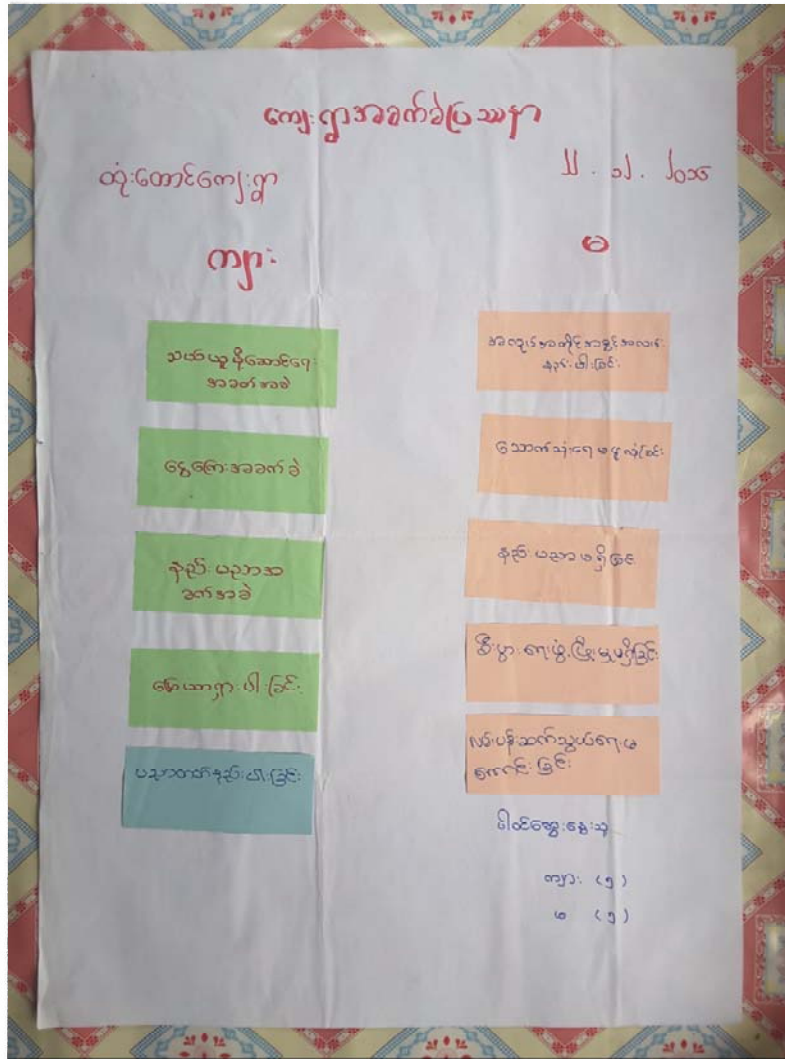 ကျေးရွာအခက်ခဲပြဿနာ
ထုံးတောင်ကျေးရွာ
ကျား
မ
သယ်ယူပို့ဆောင်ရေး
အခက်အခဲ
ငွေကြေးအခက်ခဲ
နည်းပညာအ
ခက်အခဲ
မြေယာရှားပါးခြင်း
ပညာတတ်နည်းပါးခြင်း
အလုပ်အကိုင်အခွင့်အလမ်း
နည်းပါးခြင်း
သောက်သုံးရေမဖူလုံခြင်း
နည်းပညာမရှိခြင်း
စီးပွားရေးဖွံ့ဖြိုးမှုမရှိခြင်း
လမ်းပန်းဆက်သွယ်ရေးမ
ကောင်းခြင်း
ပါဝင်ဆွေးနွေးသူ
ကျား (၅)
မ (၅)